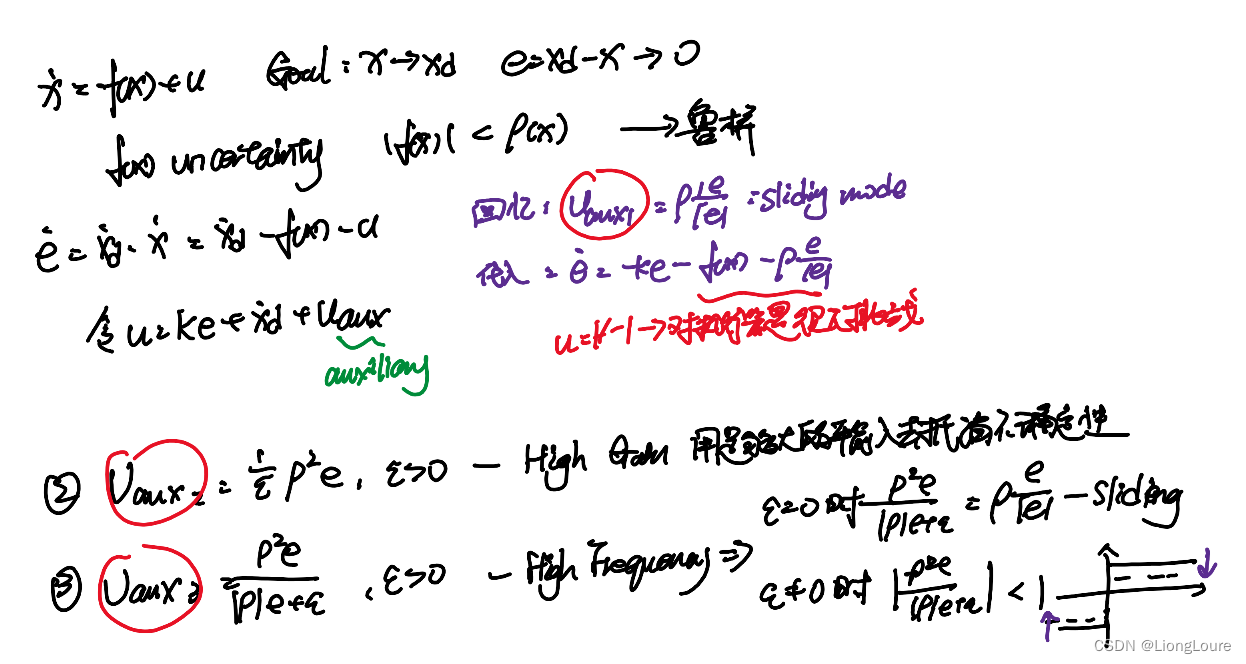 ẋ = f(x) + u Goal : x → xd e = xd - x → 0
f(x) uncertainty |f(x)| < ρ(x) → 鲁棒
回忆 : Uaux1 = ρ e/|e| : sliding mode
ė = ẋd - ẋ = ẋd - f(x) - u
代入 = ė = -ke - f(x) - ρ e/|e|
令 u = ke + ẋd + Uaux
auxiliary
② Uaux2 = 1/ε ρ²e , ε>0 — High Gain 用足够大的输入去抵消不稳定性
ε=0 时 ρ²e/|ρ|e+ε = ρ e/|e| — Sliding
③ Uaux3 ρ²e/|ρ|e+ε , ε>0 — High Frequency ⇒
ε≠0 时 |ρ²e/|ρ|e+ε| < 1
CSDN @LiongLoure